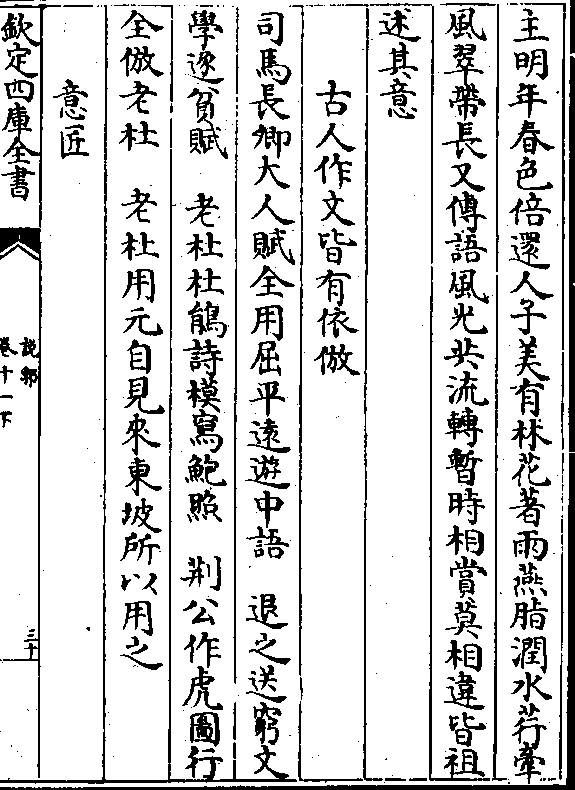 主明年春色倍還人子美有林花著雨燕脂潤水荇牽
風翠帶長又傳語風光共流轉暫時相賞莫相違皆祖
述其意
古人作文皆有依倣
司馬長卿大人賦全用屈平遠遊中語　退之送窮文
學逐貧賦　老杜杜鵑詩模寫鮑照　荆公作虎圖行
全倣老杜　老杜用元自見來東坡所以用之
意匠
欽定四庫全書
說郛
卷十一下
三十